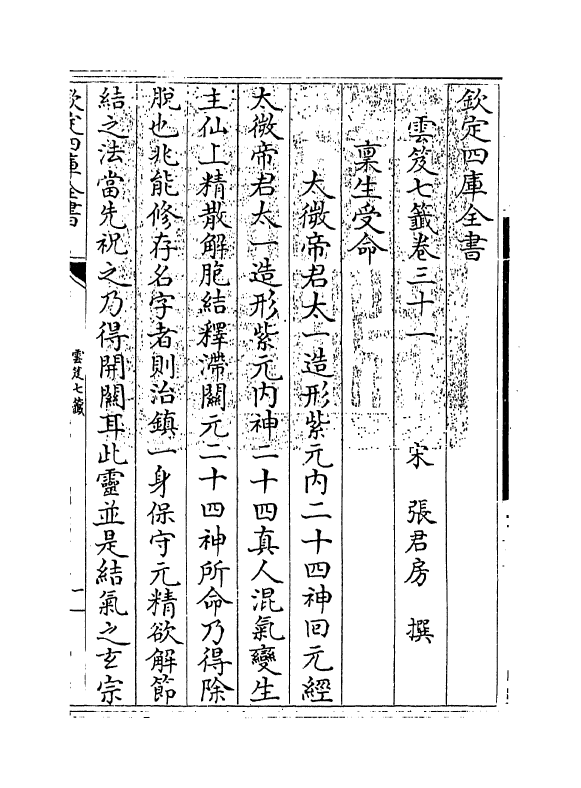 欽定四庫全書
雲笈七籤卷三十一　宋　張君房　撰
稟生受命
太微帝君太一造形紫元内二十四神回元經
太微帝君太一造形紫元内神二十四真人混氣變生
主仙上精散解胞結釋滯關元二十四神所命乃得除
脫也兆能修存名字者則治鎮一身保守元精欲解節
結之法當先祝之乃得開關耳此靈並是結氣之玄宗
欽定四庫全書
雲笈七籤
一